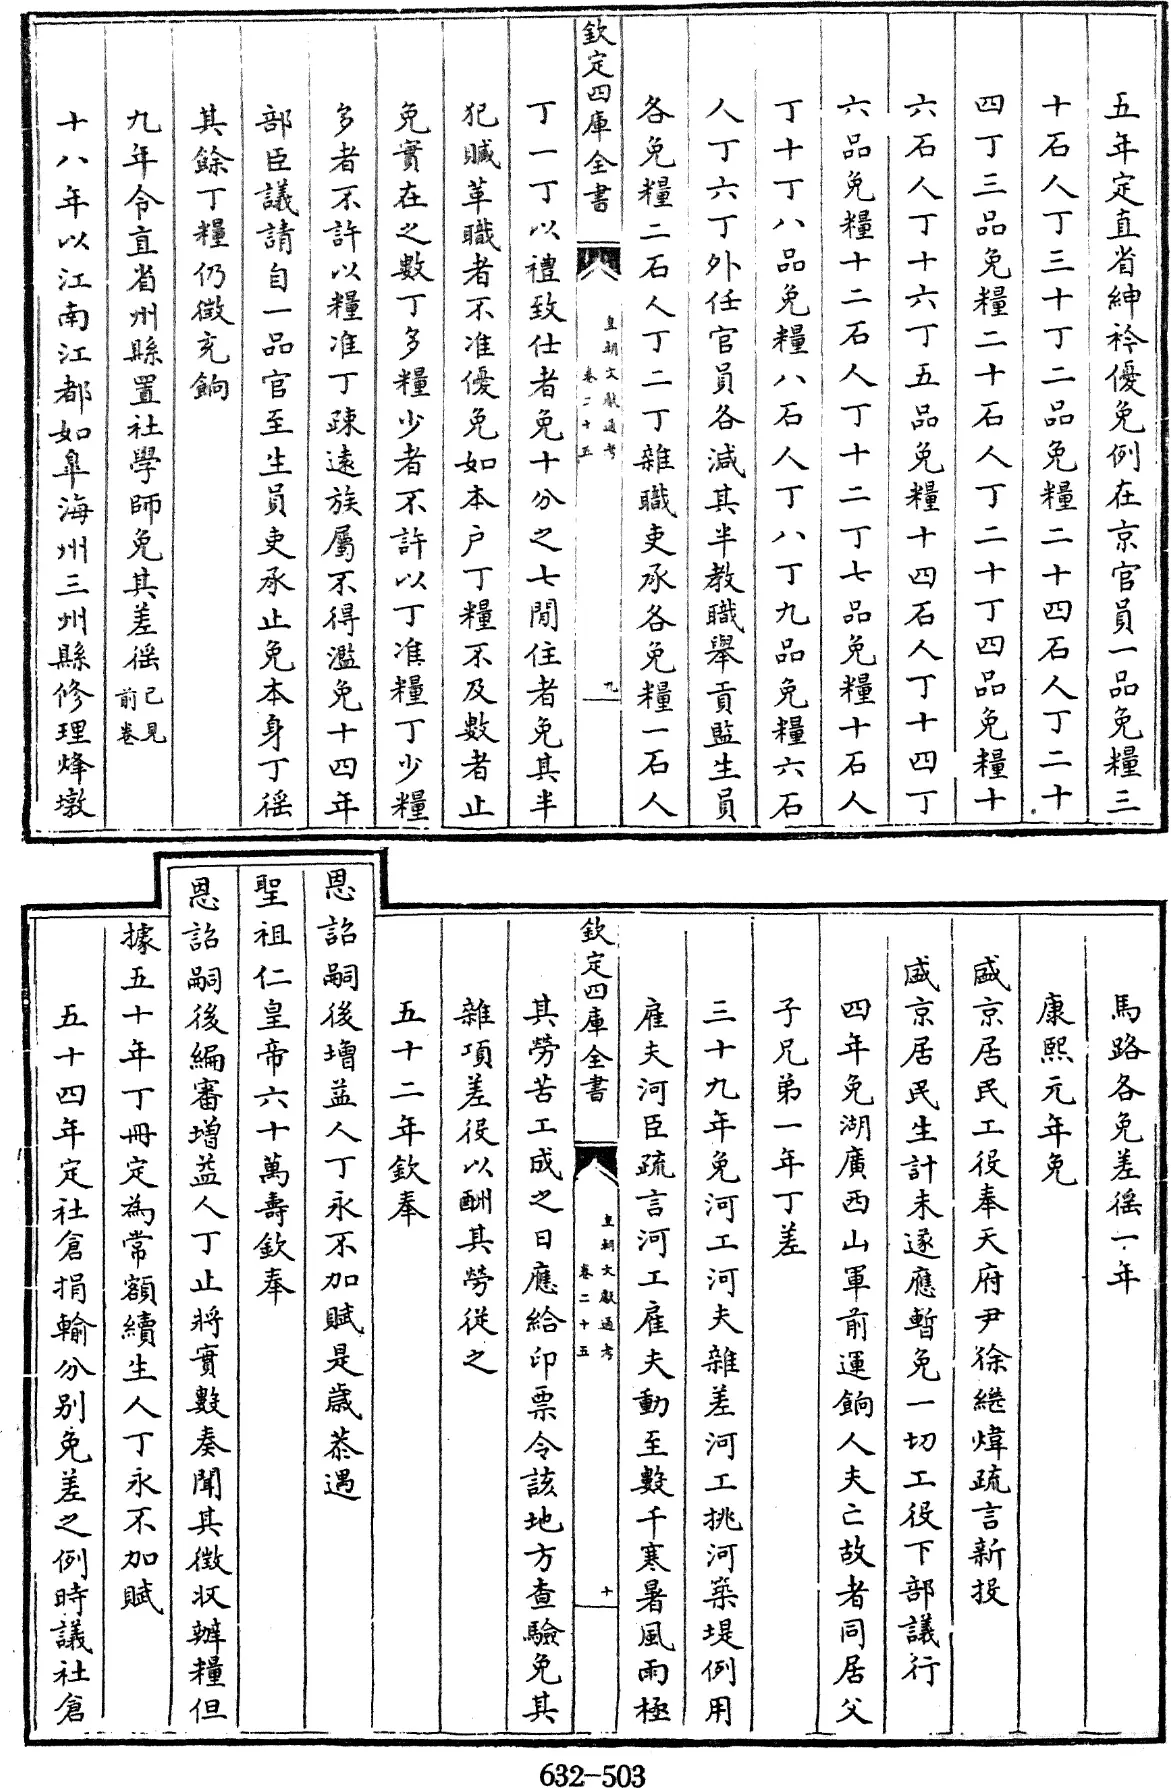 五年定直省紳衿優免例在京官員一品免糧三
十石人丁三十丁二品免糧二十四石人丁二十
四丁三品免糧二十石人丁二十丁四品免糧十
六石人丁十六丁五品免糧十四石人丁十四丁
六品免糧十二石人丁十二丁七品免糧十石人
丁十丁八品免糧八石人丁八丁九品免糧六石
人丁六丁外任官員各減其半教職舉貢監生員
各免糧二石人丁二丁雜職吏承各免糧一石人
欽定四庫全書
皇朝文獻通考
卷二十五
九
丁一丁以禮致仕者免十分之七閒住者免其半
犯贓革職者不准優免如本户丁糧不及數者止
免實在之數丁多糧少者不許以丁准糧丁少糧
多者不許以糧准丁疎遠族屬不得濫免十四年
部臣議請自一品官至生員吏承止免本身丁徭
其餘丁糧仍徵充餉
九年令直省州縣置社學師免其差徭已見前卷
十八年以江南江都如臯海州三州縣修理烽墩
馬路各免差徭一年
康熙元年免
盛京居民工役奉天府尹徐繼煒疏言新投
盛京居民生計未遂應暫免一切工役下部議行
四年免湖廣西山軍前運餉人夫亡故者同居父
子兄弟一年丁差
三十九年免河工河夫雜差河工挑河築堤例用
雇夫河臣疏言河工雇夫動至數千寒暑風雨極
欽定四庫全書
皇朝文獻通考
卷二十五
十
其勞苦工成之日應給印票令該地方查驗免其
雜項差役以酬其勞從之
五十二年欽奉
恩詔嗣後增益人丁永不加賦是歲恭遇
聖祖仁皇帝六十萬壽欽奉
恩詔嗣後編審增益人丁止將實數奏聞其徵收辦糧但
據五十年丁冊定為常額續生人丁永不加賦
五十四年定社倉捐輸分别免差之例時議社倉
632-503